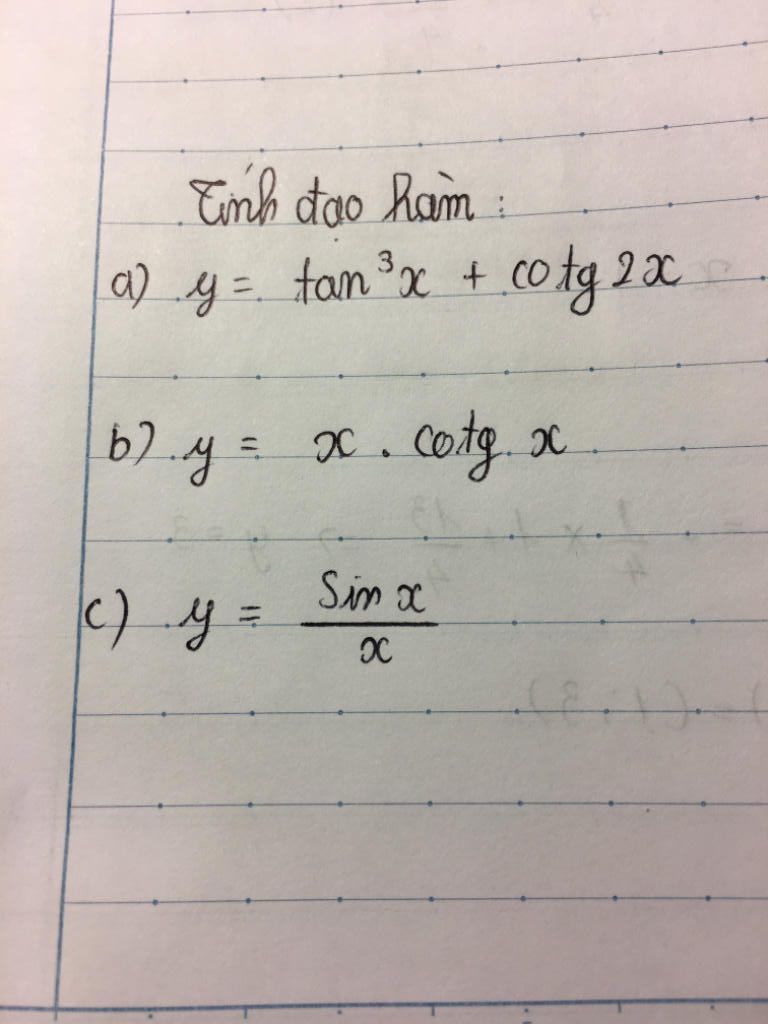 Tính đạo hàm :
a) y = tan³x + cotg 2x
b) y = x . cotg x
c) y = sin x / x